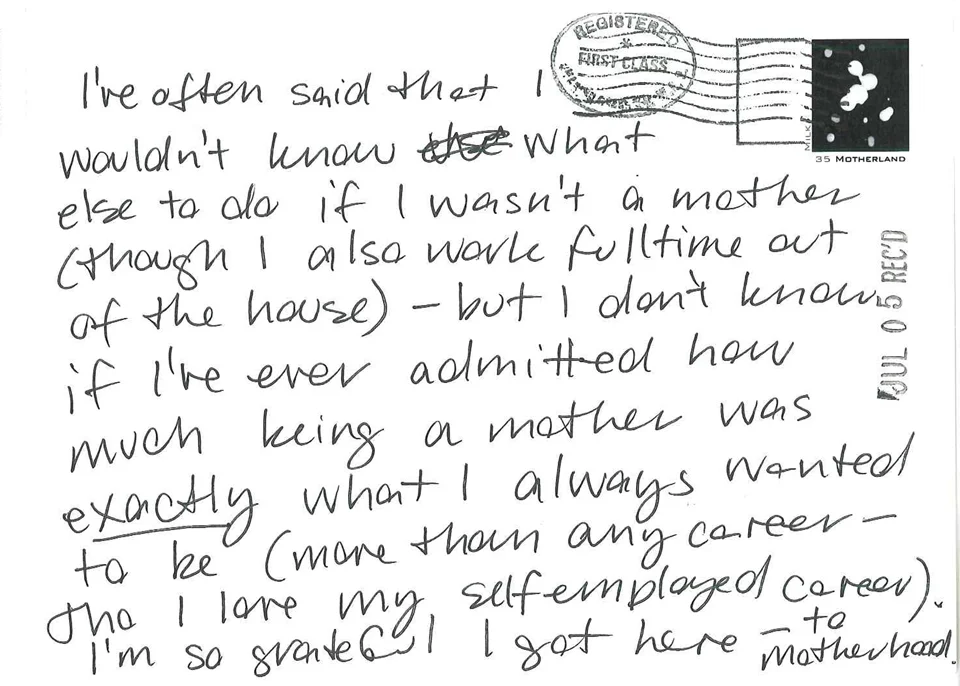 REGISTERED
FIRST CLASS
MILK
35 MOTHERLAND
JUL 05 REC'D
I've often said that I
wouldn't know else what
else to do if I wasn't a mother
(though I also work fulltime out
of the house) – but I don't know
if I've ever admitted how
much being a mother was
exactly what I always wanted
to be (more than any career –
tho I love my selfemployed career).
I'm so grateful I got here – to
motherhood.